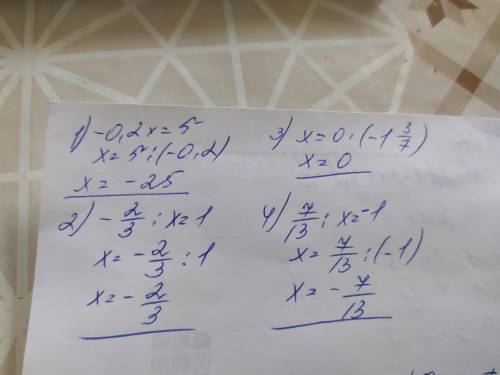 1) -0,2x=5
x=5:(-0,2)
x=-25
2) -2/3 : x=1
x=-2/3 : 1
x=-2/3
3) x=0:(-1 3/7)
x=0
4) 7/13 : x=-1
x=7/13 : (-1)
x=-7/13